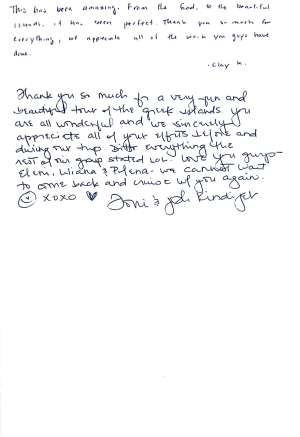 This has been amazing. From the food, to the beautiful
islands, it has been perfect. Thank you so much for
everything, we appreciate all of the work you guys have
done.
- Clay K.
Thank you so much for a very fun and
beautiful tour of the greek islands you
are all wonderful and we sincerely
appreciate all of your efforts before and
during our trip. Ditto everything the
rest of our group stated too. Love you guys-
Eleni, Liliana & - we cannot wait
to come back and cruise w/ you again.
xoxo ♥ Toni &